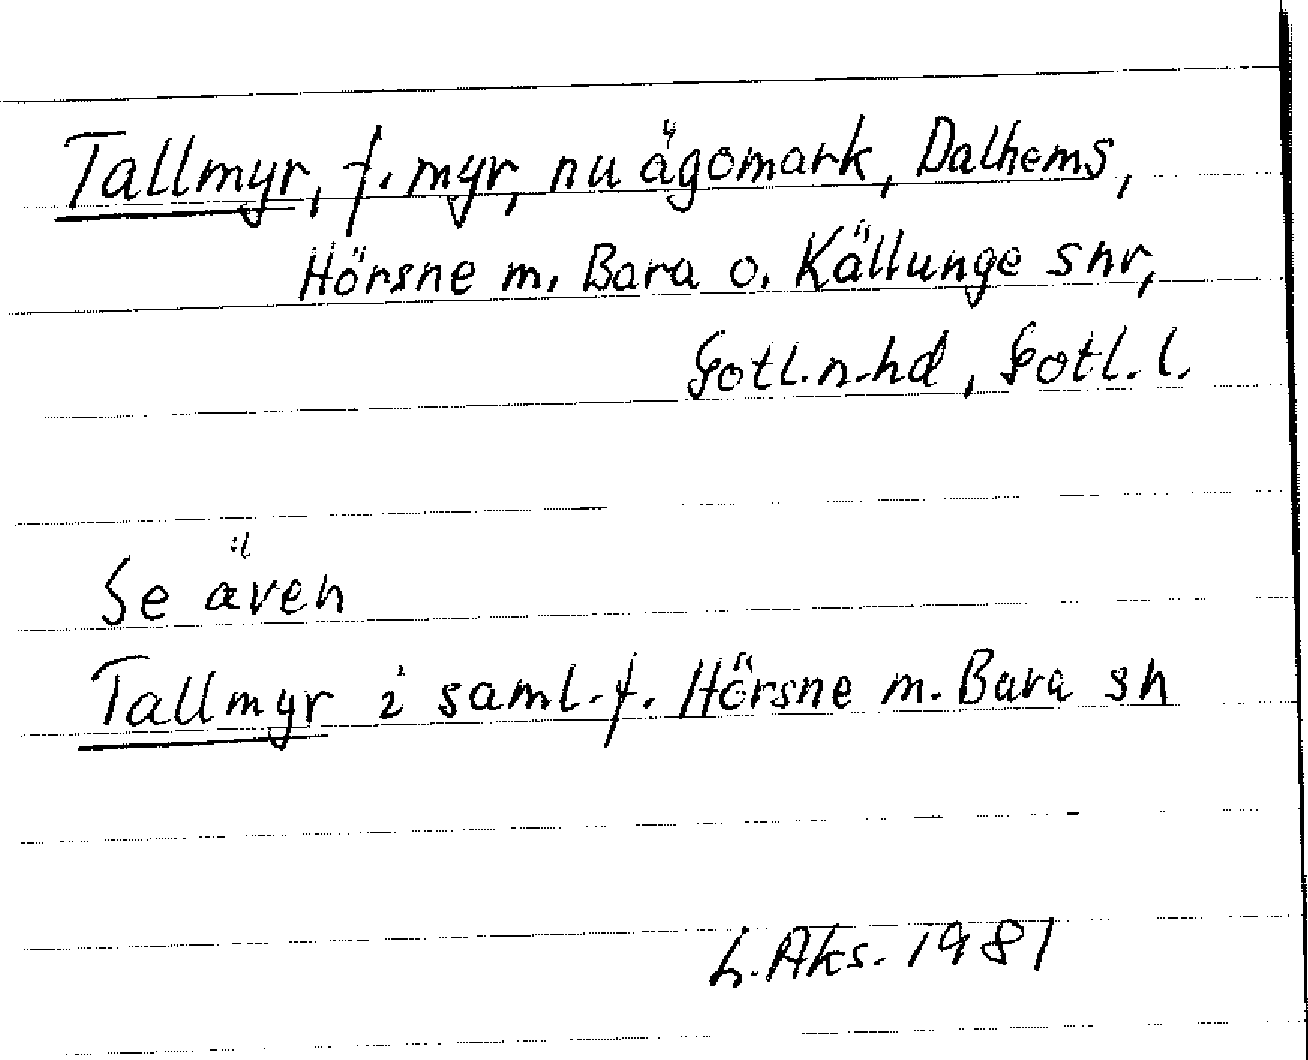 Tallmyr, f. myr, nu ägomark, Dalhems,
Hörsne m. Bara o. Källunge snr,
Gotl.n.hd, Gotl.l.
Se även
Tallmyr i saml.f. Hörsne m. Bara sn
L.Aks. 1981